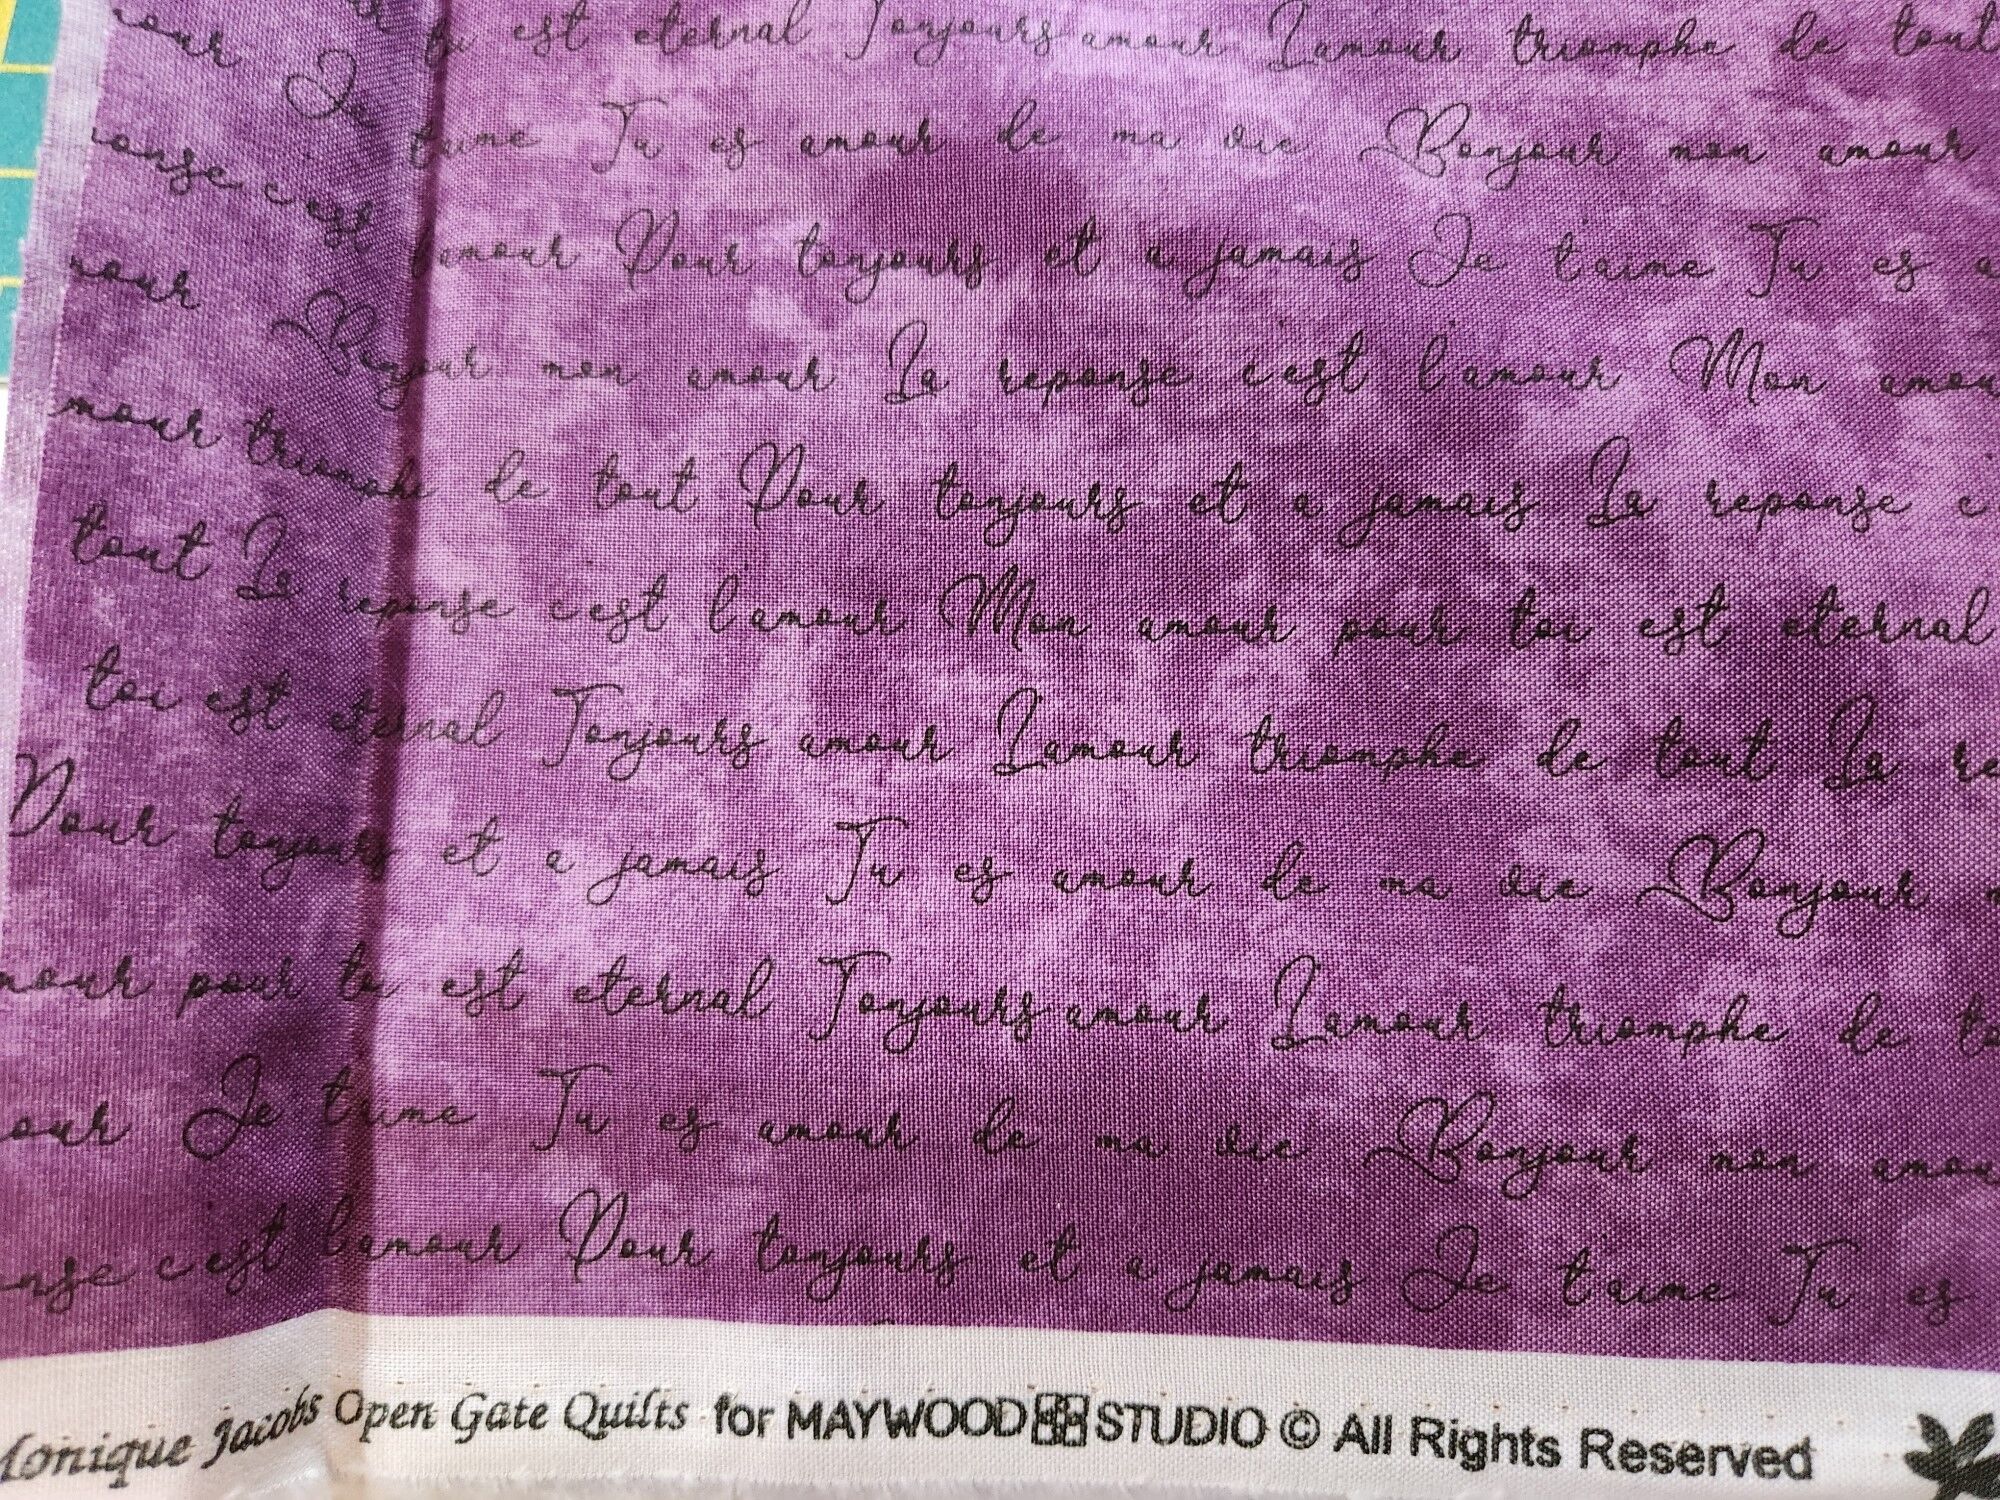 est eternal Toujours amour Lamour triomphe de tout
Je taime Tu es amour de ma vie Bonjour mon amour
c'est l'amour Pour toujours et a jamais Je t'aime Tu es
Bonjour mon amour La reponse c'est l'amour Mon
triomphe de tout Pour toujours et a jamais La reponse
tout La reponse c'est l'amour Mon amour pour toi est eternal
toi est eternal Toujours amour Lamour triomphe de tout La
Pour toujours et a jamais Tu es amour de ma vie Bonjour
pour toi est eternal Toujours amour Lamour triomphe de
Je t'aime Tu es amour de ma vie Bonjour mon
c'est l'amour Pour toujours et a jamais Je t'aime Tu es
Monique Jacobs Open Gate Quilts for MAYWOOD STUDIO © All Rights Reserved